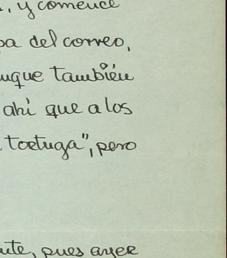 , y comencé
pa del correo,
uque también
ahí que a los
tortuga", pero
ute, pues ayer